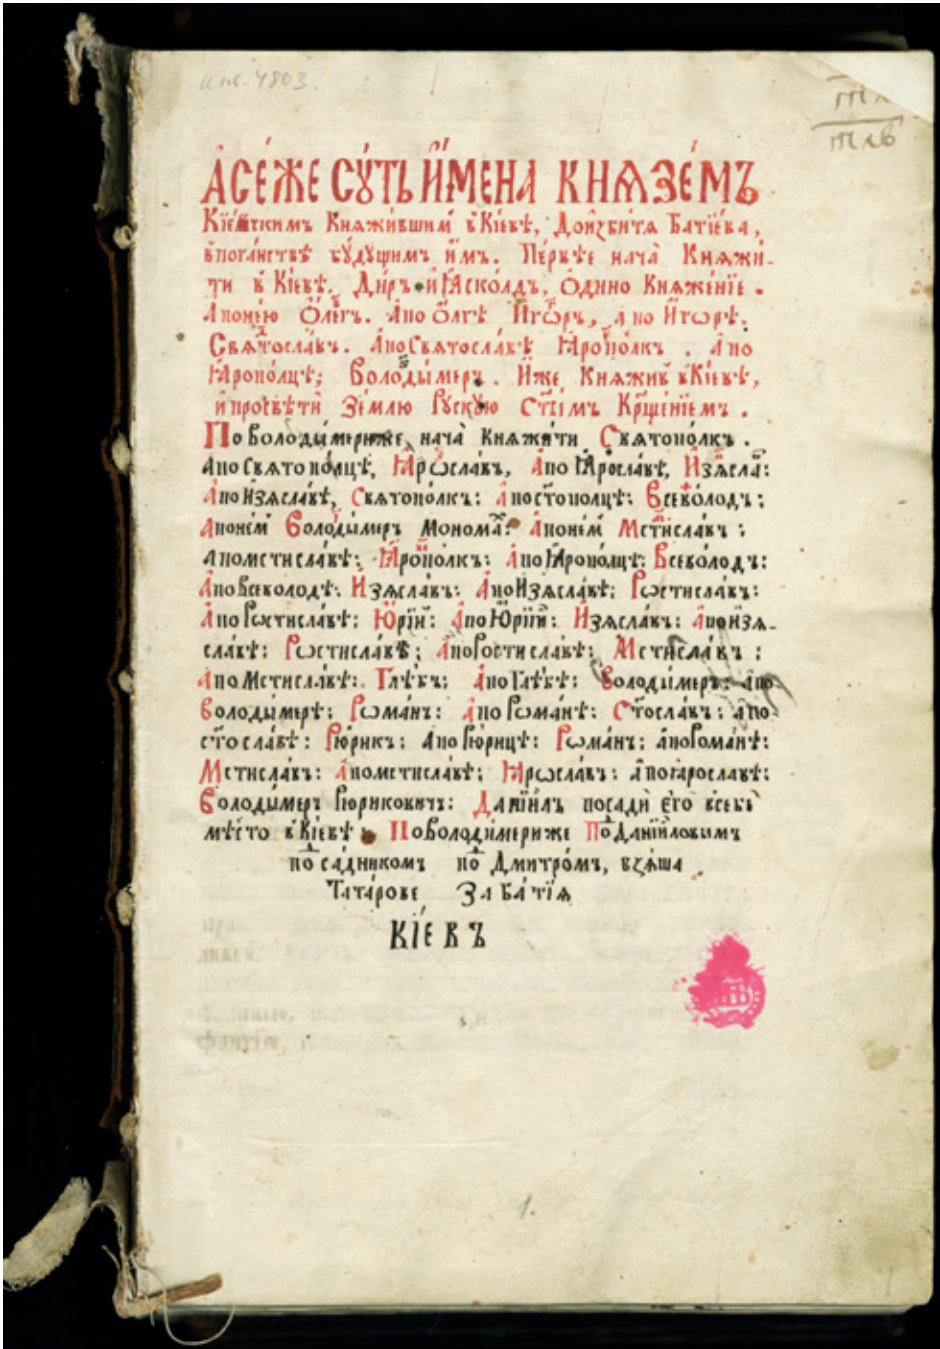 инв. 4803.
А СЕ́ЖЕ СꙊ́ТЬ И҆́МЕНА КНѦЗЕ́МЪ
Кїе́вскимъ Кнѧжи́вшим в̾Кі́евѣ, До и҆збитѧ Батїе́ва,
в̾пога́нствѣ бꙋ́дꙋщимъ и҆́мъ. Пе́рвѣе нача̀ Кнѧжи́-
ти в̾ Кі́евѣ. Ди́ръ и҆ Ꙗ҆ско́лдъ, Ѻ҆дино Кнѧже́нїе.
А по нею Ѻ҆ле́гъ. А по Ѻ҆лгѣ И҆́гѡръ, а по И҆́горѣ,
Свѧ́тосла́въ. А по Свѧтосла́вѣ Ꙗ҆ропо́лкъ. А по
Ꙗ҆ропо́лцѣ; Володы́меръ. И҆́же Кнѧжив̾ в̾Кі́евѣ,
и҆ просвѣти̇̀ Зе́млю Рꙋскꙋю Ст҃ы́мъ Крщ҃е́нїемъ.
По Володы́мерꙋже, нача̀ кнѧжи́ти Свѧтопо́лкъ.
А по Свѧтопо́лцѣ, Ꙗ҆рѡсла́въ, А по Ꙗ҆росла́вѣ, И҆зѧсла́в:
А по И҆зѧсла́вѣ, Свѧтопо́лкъ: А по ст҃ополцѣ: Все́володъ:
А по не́м Володы́меръ Монома́х: А по не́м Мсти́славъ:
а по мстисла́вѣ: Ꙗ҆ропо́лкъ: А по Ꙗ҆ропо́лцѣ: Все́володъ:
А по Все́володѣ: И҆зѧсла́въ: А по И҆зѧсла́вѣ: Рѡстисла́въ:
А по Рѡстисла́вѣ: Ю҆́рїй: А по Ю҆́рїи: И҆зѧсла́въ: А по и҆зѧ-
сла́вѣ: Рѡстисла́въ; А по Ростисла́вѣ: Мстисла́въ:
А по Мстисла́вѣ: Глѣ́бъ: А по Глѣ́бѣ: Володы́меръ: А по
Володы́мерѣ: Рѡма́нъ: А по Рома́нѣ: Ст҃осла́въ: а по
ст҃осла́вѣ: Рю́рикъ: А по Рю́рицѣ: Рѡма́нъ: а по Рома́нѣ:
Мстисла́въ: А по мстисла́вѣ; Ꙗ҆рѡсла́въ: а по ꙗросла́вѣ:
Володы́меръ Рюриковичъ: Дании́лъ посади̇̀ е҆го̀ в̾себѐ
мѣ́сто в̾Кі́евѣ: По Володи́мериже по́д Даниї́ловымъ
по́садником по́д Дмитро́мъ, взѧ́ша
Тата́рове За Ба́тїѧ
КІ́ЕВЪ
1.